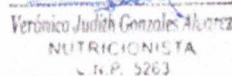 Verónica Judith Gonzales Alvarez
NUTRICIONISTA
C.N.P. 5263